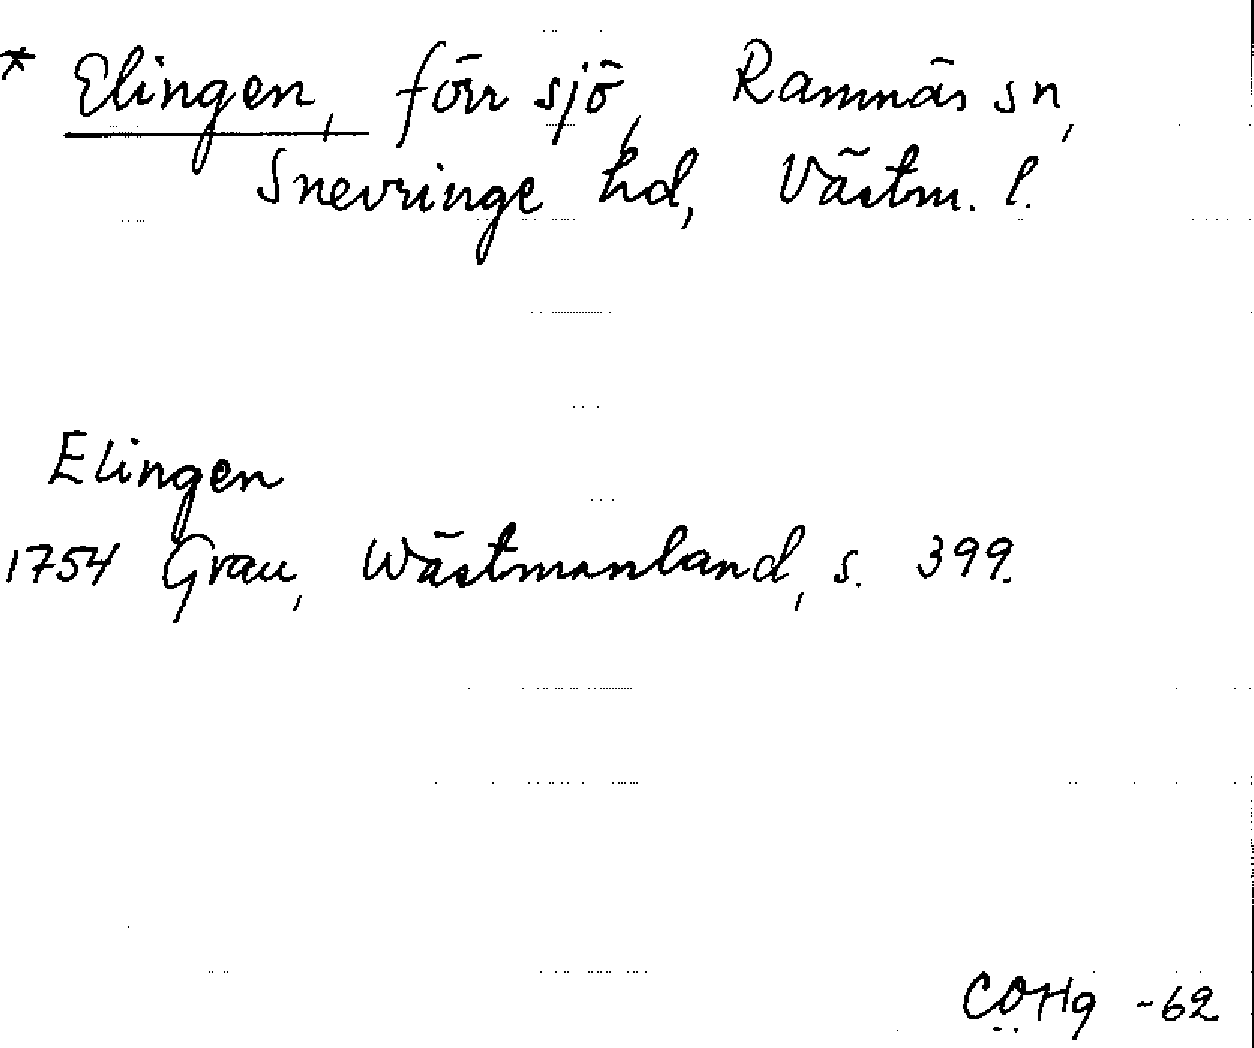 * Elingen, förr sjö, Ramnäs sn,
Snevringe hd, Västm. l.
Elingen
1754 Grau, Wästmanland, s. 399.
COHg -62